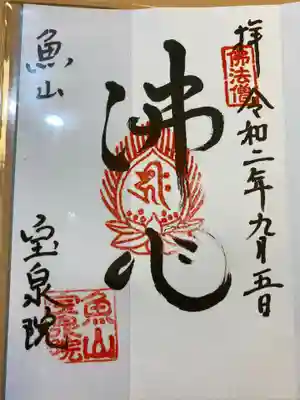 拝 令和二年九月五日
佛法僧
佛心
魚山
宝泉院
魚山
宝泉院